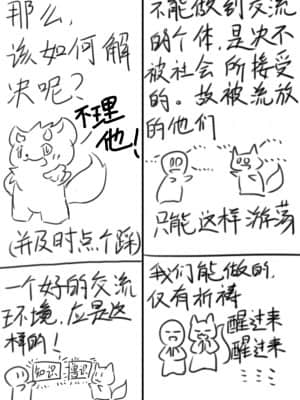 那么，
该如何解
决呢？
不理
他！
(并及时点个踩)
不能做到交流
的个体，是决不
被社会所接受
的。故被流放
的他们
只能这样游荡
一个好的交流
环境，应是这
样的！
知识
我们能做的，
仅有祈祷
醒过来
醒过来